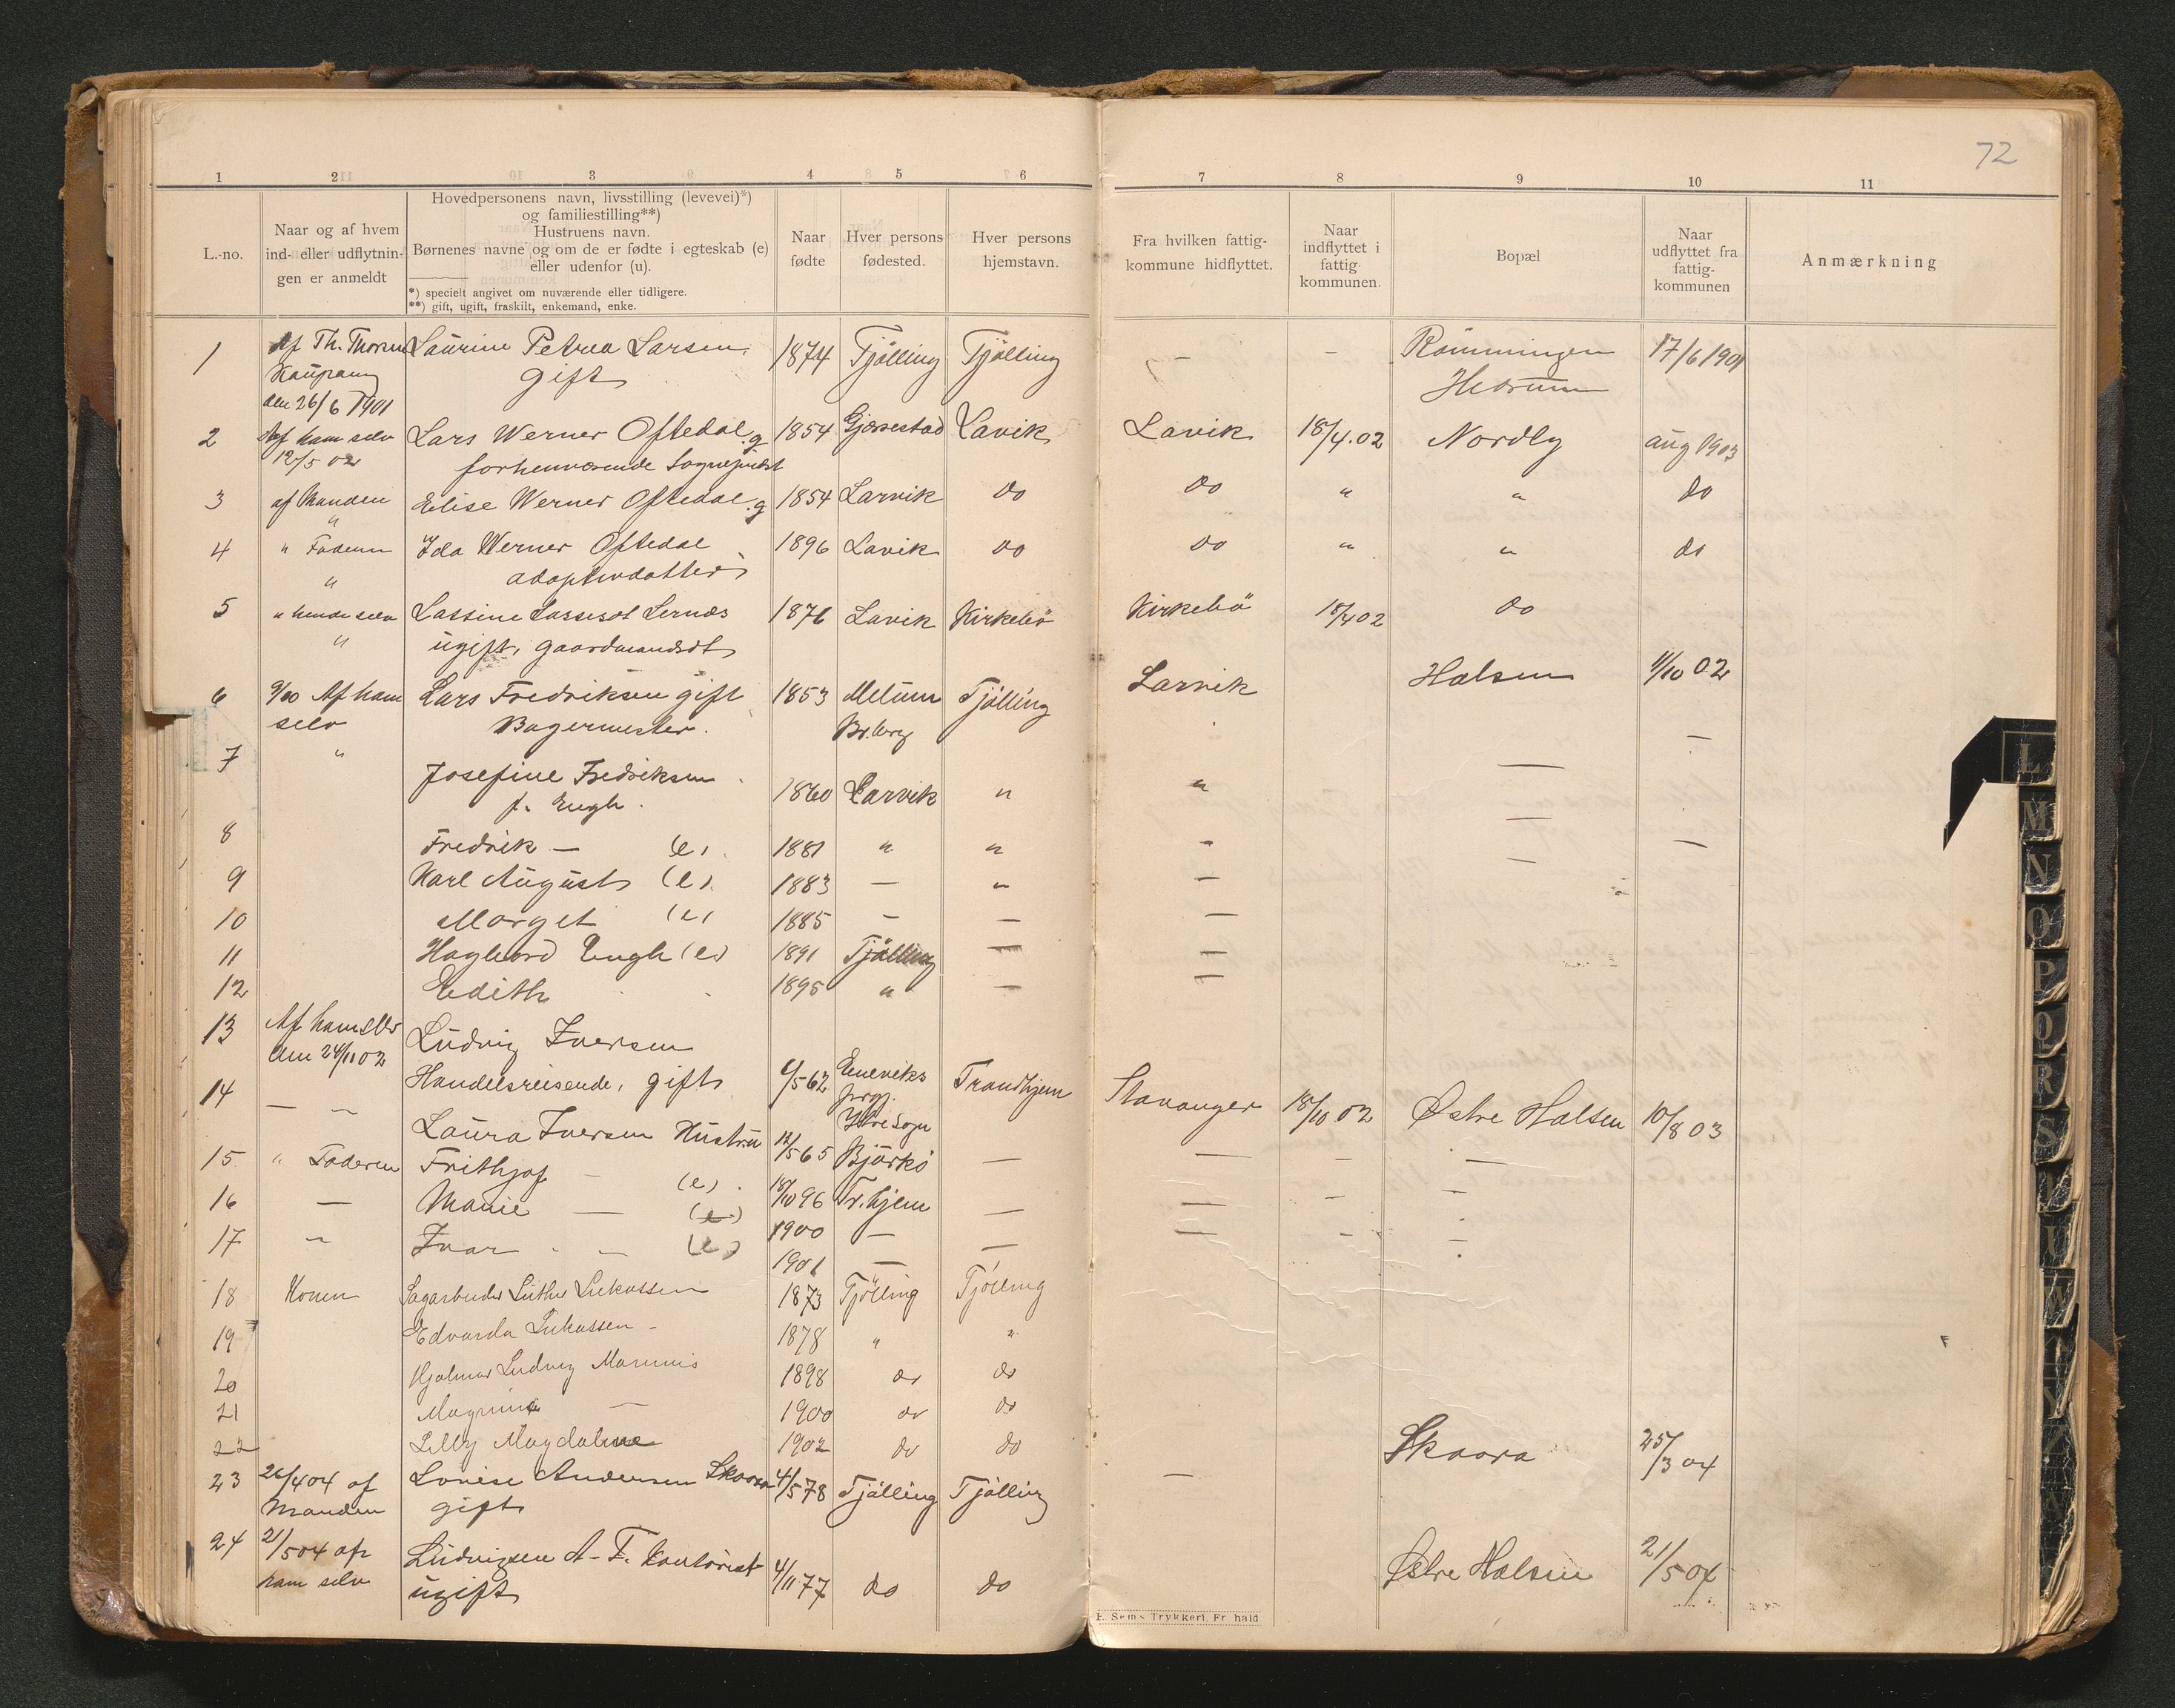 72
1 2 3 4 5 6 7 8 9 10 11
L.-no.
Naar og af hvem
ind- eller udflytnin-
gen er anmeldt
Hovedpersonens navn, livsstilling (levevei)*)
og familiestilling**)
Hustruens navn.
Børnenes navne og om de er fødte i egteskab (e)
eller udenfor (u).
*) specielt angivet om nuværende eller tidligere.
**) gift, ugift, fraskilt, enkemand, enke.
Naar
fødte
Hver persons
fødested.
Hver persons
hjemstavn.
Fra hvilken fattig-
kommune hidflyttet.
Naar
indflyttet i
fattig-
kommunen.
Bopæl
Naar
udflyttet fra
fattig-
kommunen
Anmærkning
1 Af Th. Thorsen Laurine Petrea Larsen, 1874 Tjölling Tjölling — — Römmingen 17/6 1901
Kaupang gift Hedrum
den 26/6 1901
2 Af ham selv Lars Werner Oftedal g 1854 Gjerrestad Lavik Lavik 18/4.02 Nordly aug 1903
12/5 02 forhenværende Sogneprest
3 af Manden Elise Werner Oftedal g 1854 Larvik do do " " do
"
4 " Faderen Ida Werner Oftedal 1896 Lavik do do " " do
" adoptivdatter
5 " hende selv Lassine Lassesdt Lernæs 1876 Lavik Kirkebö Kirkebö 18/4 02 do
" ugift, gaardmandsdt
6 9/10 Af ham Lars Fredriksen gift 1853 Melum Tjölling Larvik Halsen 1/10 02
selv Bagermester. Br.berg
7 " Josefine Fredriksen 1860 Larvik " " — —
f. Engh.
8 Fredrik — (e) 1881 " " - — —
9 Karl August (e) 1883 — " — —
10 Marget (e) 1885 - — —
11 Hagbard Engh (e) 1891 Tjölling — —
12 Edith 1895 " — —
13 Af ham selv Ludvig Iversen
den 24/11 02 Handelsreisende, gift 6/5 62 Eneveks Trondhjem Stavanger 18/10 02 Østre Halsen 10/8 03
prgj.
Ytre Sogn
14 — " Laura Iversen Hustru 12/5 65 Björkö — — — —
15 " Faderen Frithjof — (e). 18/10 96 Tr.hjem — — — -
16 — Marie — (e) 1900 — — — - -
17 " Ivar - — (e) 1901 —
18 Konen Sagarbeider Luther Lukassen 1873 Tjölling Tjölling
19 Edvarda Lukassen - 1878 " "
20 Hjalmar Ludvig Marinus 1898 do do
21 Magnine — 1900 do do
22 Lilly Magdalene 1902 do do
23 26/4 04 af Lovise Andersen Skaara 4/5 78 Tjölling Tjölling — Skaara 25/3 04
Manden gift
24 21/5 04 af Ludvigsen A. F. Kontorist 4/11 77 do do Østre Halsen 21/5 04
ham selv ugift
E. Sem's Trykkeri, Fr.hald
L
M
N
O
P
Q
R
S
T
U
W
Y
Z